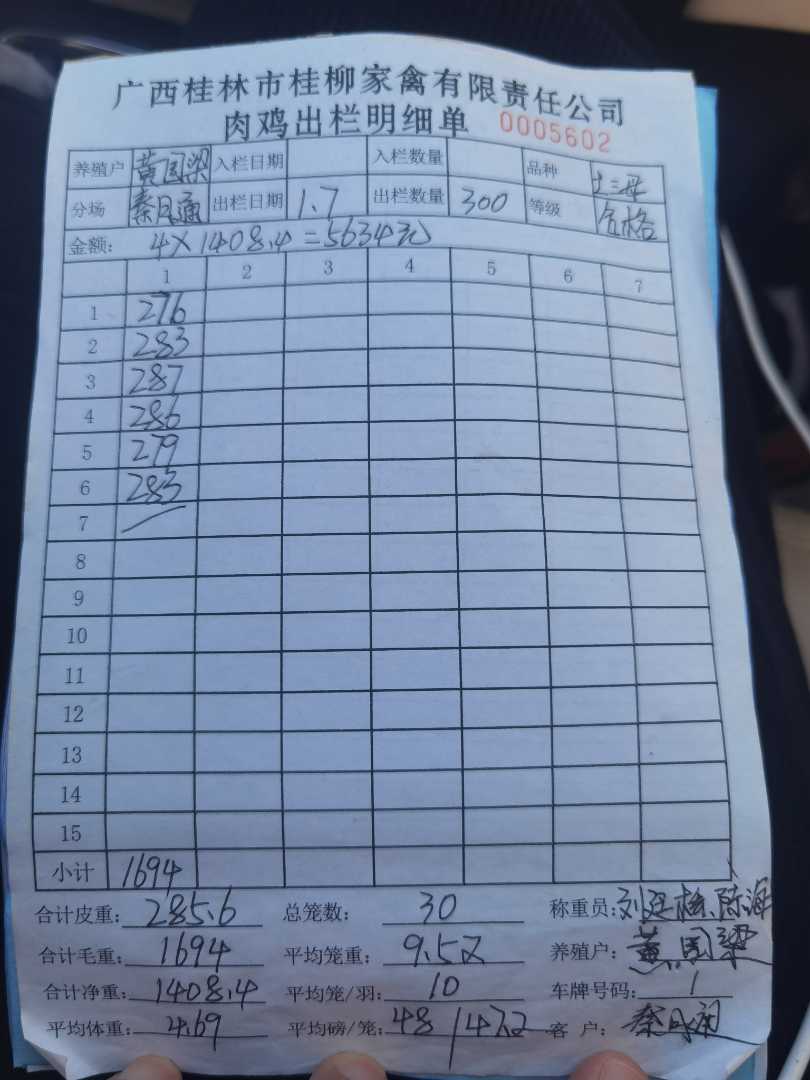 广西桂林市桂柳家禽有限责任公司
肉鸡出栏明细单 0005602
养殖户 黄国梁 入栏日期 入栏数量 品种 土三母
分场 秦月通 出栏日期 1.7 出栏数量 300 等级 合格
金额: 4×1408.4=5634元
1 2 3 4 5 6 7
1 276
2 283
3 287
4 286
5 279
6 283
7
8
9
10
11
12
13
14
15
小计 1694
合计皮重: 285.6 总笼数: 30 称重员: 刘廷 陈海
合计毛重: 1694 平均笼重: 9.52 养殖户: 黄国梁
合计净重: 1408.4 平均笼/羽: 10 车牌号码: 1
平均体重: 4.69 平均磅/笼: 48/47.2 客户: 秦月通